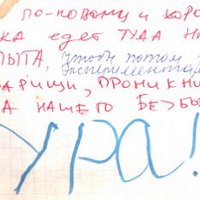 по-новому и хоро
ка едет туда на
пыта, чтобы потом
экспримента
арищи, проникни
а нашего без
УРА!